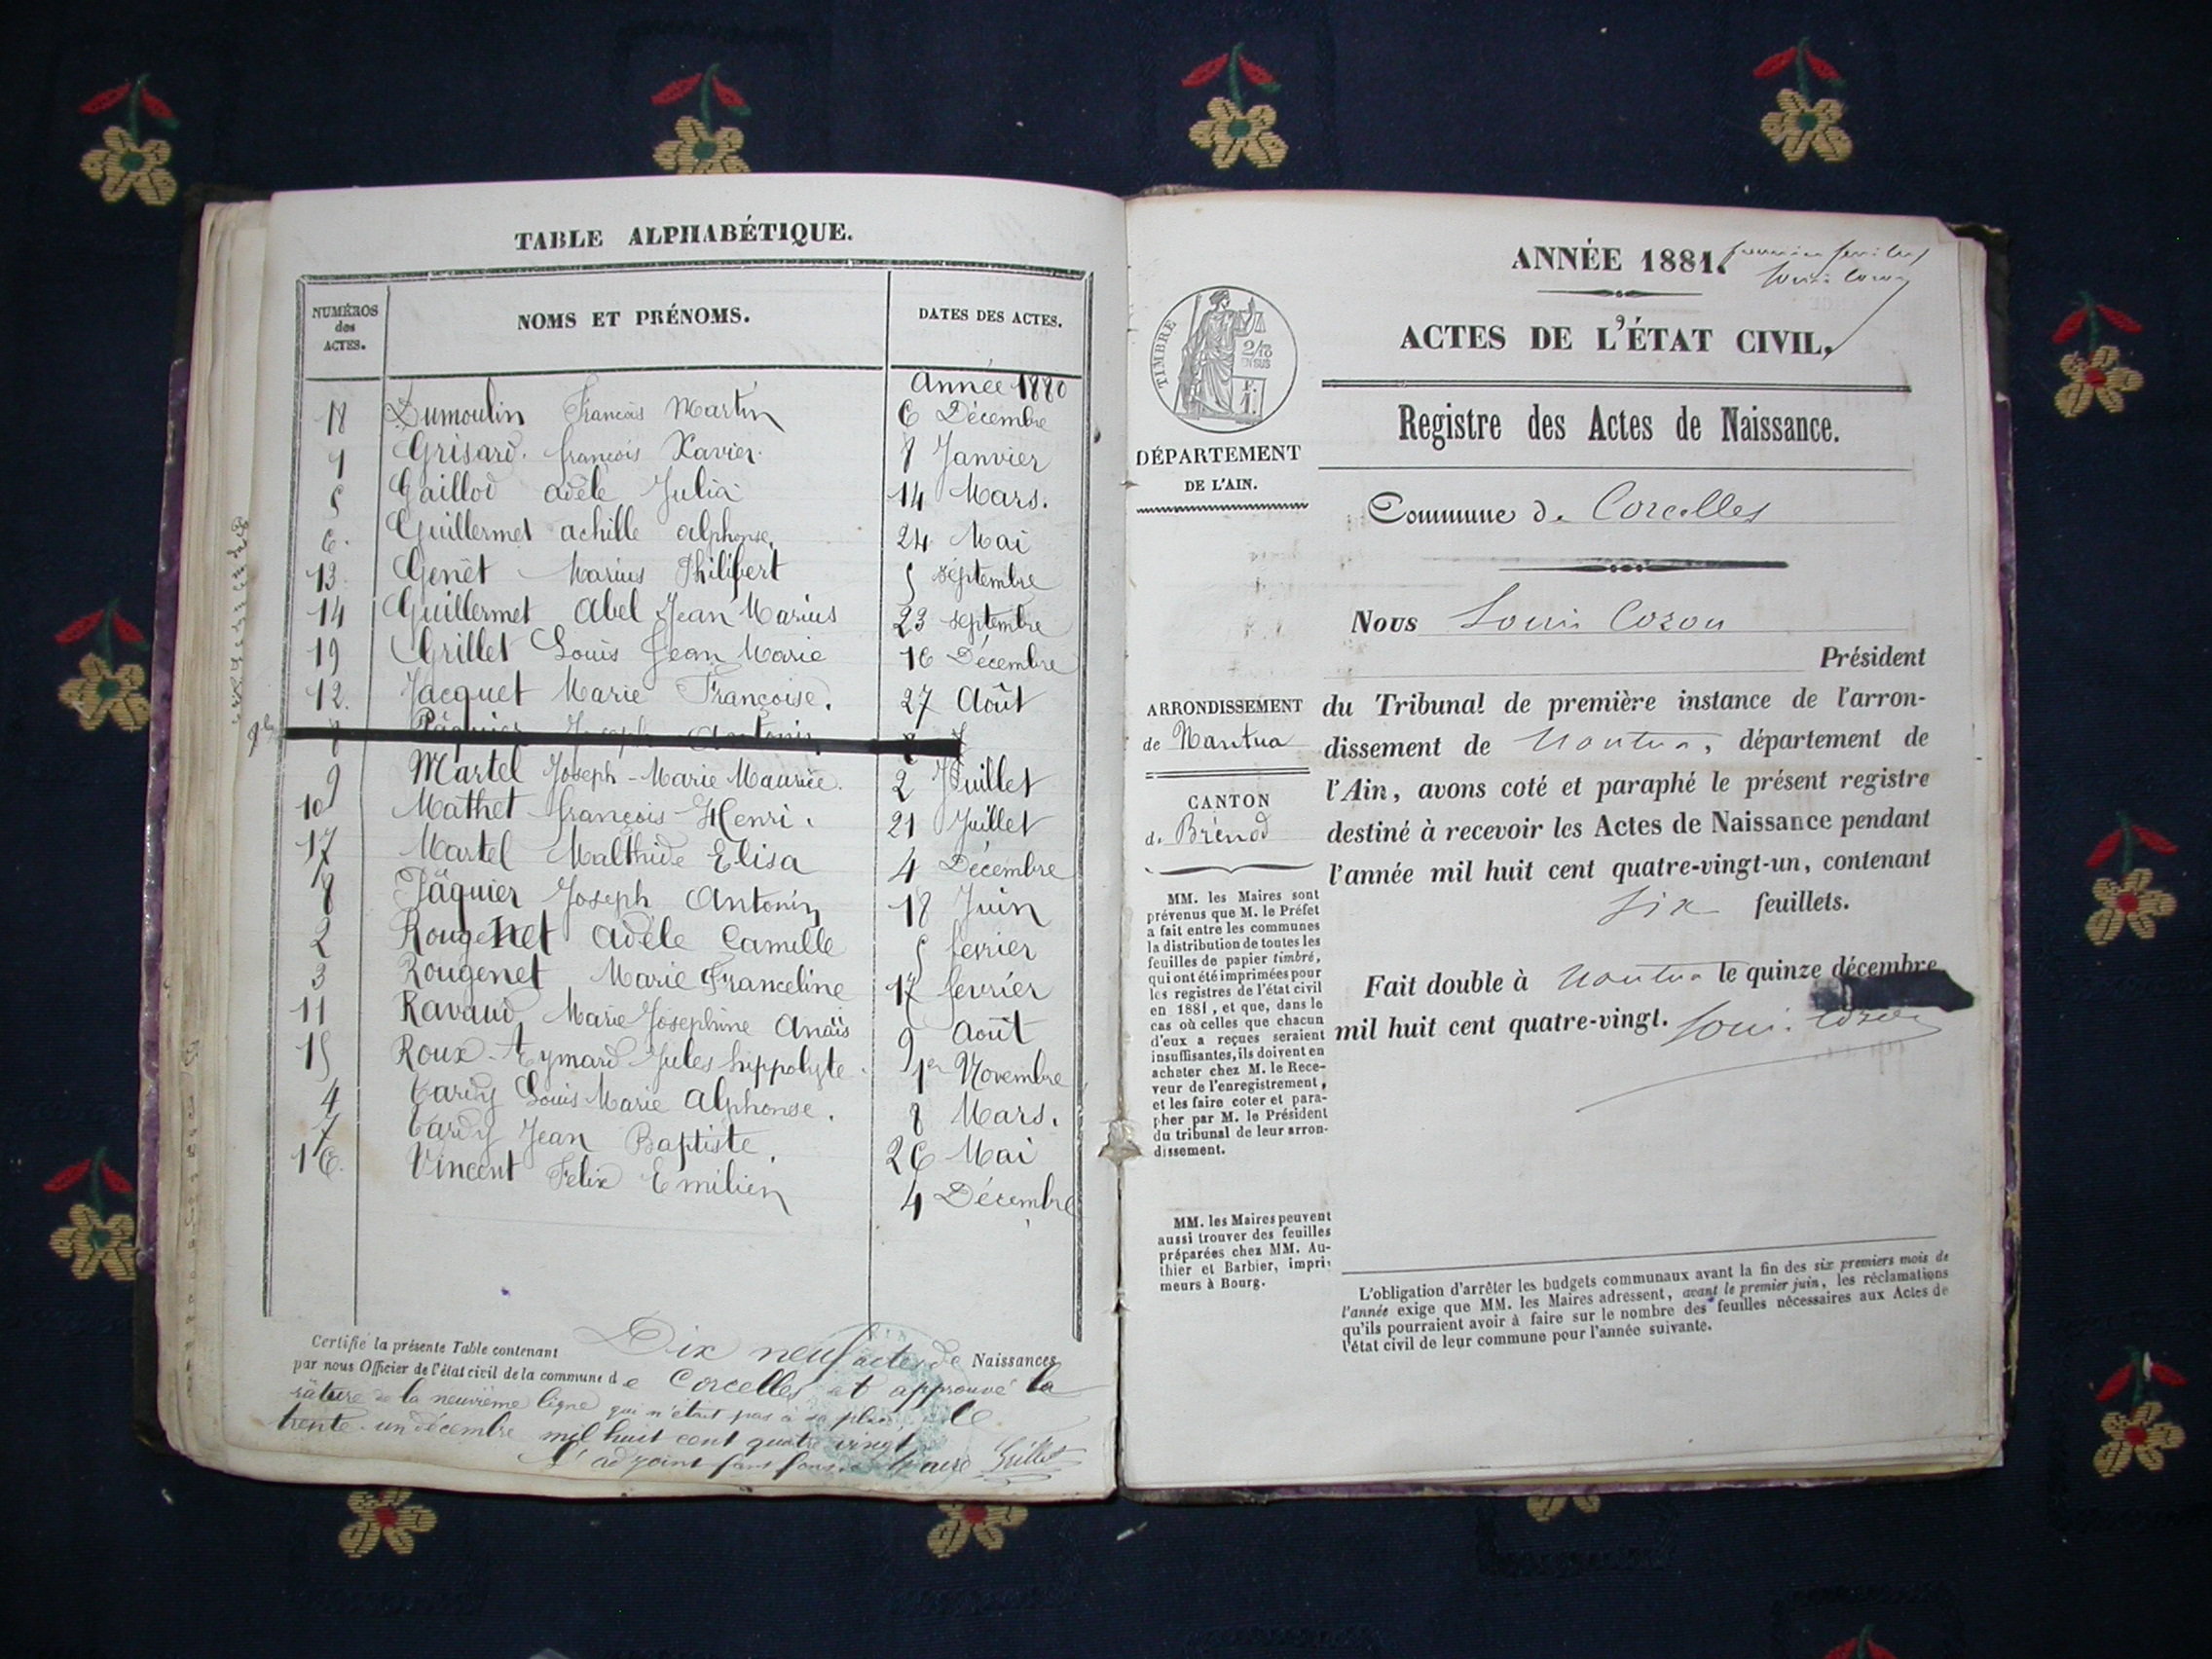 TABLE ALPHABÉTIQUE.
NUMÉROS
des
ACTES.
NOMS ET PRÉNOMS.
DATES DES ACTES.
Année 1880
18 Dumoulin François Martin 6 Décembre
1 Grisard. françois Xavier. 8 Janvier
5 Gaillod adèle Julia 14 Mars.
6. Guillermet achille alphonse. 24 Mai
13. Genêt Marius Philibert 5 septembre
14 Guillermet Abel Jean Marius 23 septembre
19 Grillet Louis Jean Marie 16 Décembre
12. Jacquet Marie Françoise. 27 Août
8 Pâquier Joseph Antonin
9 Martel Joseph-Marie Maurice. 2 Juillet
10 Mathet françois-Henri. 21 Juillet
17 Martel Malthide Elisa 4 Décembre
8 Pâquier Joseph Antonin 18 Juin
2 Rougenet adèle Camille 5 fevrier
3 Rougenet Marie Franceline 17 fevrier
11 Ravaud Marie Josephine Anaïs 9 Août
15 Roux-Eymard Jules hippolyte. 1er Novembre
4 Tardy Louis Marie Alphonse. 8 Mars.
7 Tardy Jean Baptiste. 26 Mai
16. Vincent Felix Emilien 4 Décembre
Certifié la présente Table contenant Dix neuf actes de Naissances
par nous Officier de l'état civil de la commune de Corcelles et approuvé la
râture de la neuvième ligne qui n'était pas à sa place, le
trente-un décembre mil huit cent quatre vingt
L'adjoint Grillet
ANNÉE 1881.
ACTES DE L'ÉTAT CIVIL,
TIMBRE
2/10
EN SUS
DÉPARTEMENT
DE L'AIN.
Registre des Actes de Naissance.
Commune de Corcelles
Nous Louis Cozon
Président
ARRONDISSEMENT
de Nantua
CANTON
de Brénod
du Tribunal de première instance de l'arron-
dissement de Nantua, département de
l'Ain, avons coté et paraphé le présent registre
destiné à recevoir les Actes de Naissance pendant
l'année mil huit cent quatre-vingt-un, contenant
six feuillets.
Fait double à Nantua le quinze décembre
mil huit cent quatre-vingt. Louis Cozon
MM. les Maires sont
prévenus que M. le Préfet
a fait entre les communes
la distribution de toutes les
feuilles de papier timbré,
qui ont été imprimées pour
les registres de l'état civil
en 1881, et que, dans le
cas où celles que chacun
d'eux a reçues seraient
insuffisantes, ils doivent en
acheter chez M. le Rece-
veur de l'enregistrement,
et les faire coter et para-
pher par M. le Président
du tribunal de leur arron-
dissement.
MM. les Maires peuvent
aussi trouver des feuilles
préparées chez MM. Au-
thier et Barbier, impri-
meurs à Bourg.
L'obligation d'arrêter les budgets communaux avant la fin des six premiers mois de
l'année exige que MM. les Maires adressent, avant le premier juin, les réclamations
qu'ils pourraient avoir à faire sur le nombre des feuilles nécessaires aux Actes de
l'état civil de leur commune pour l'année suivante.